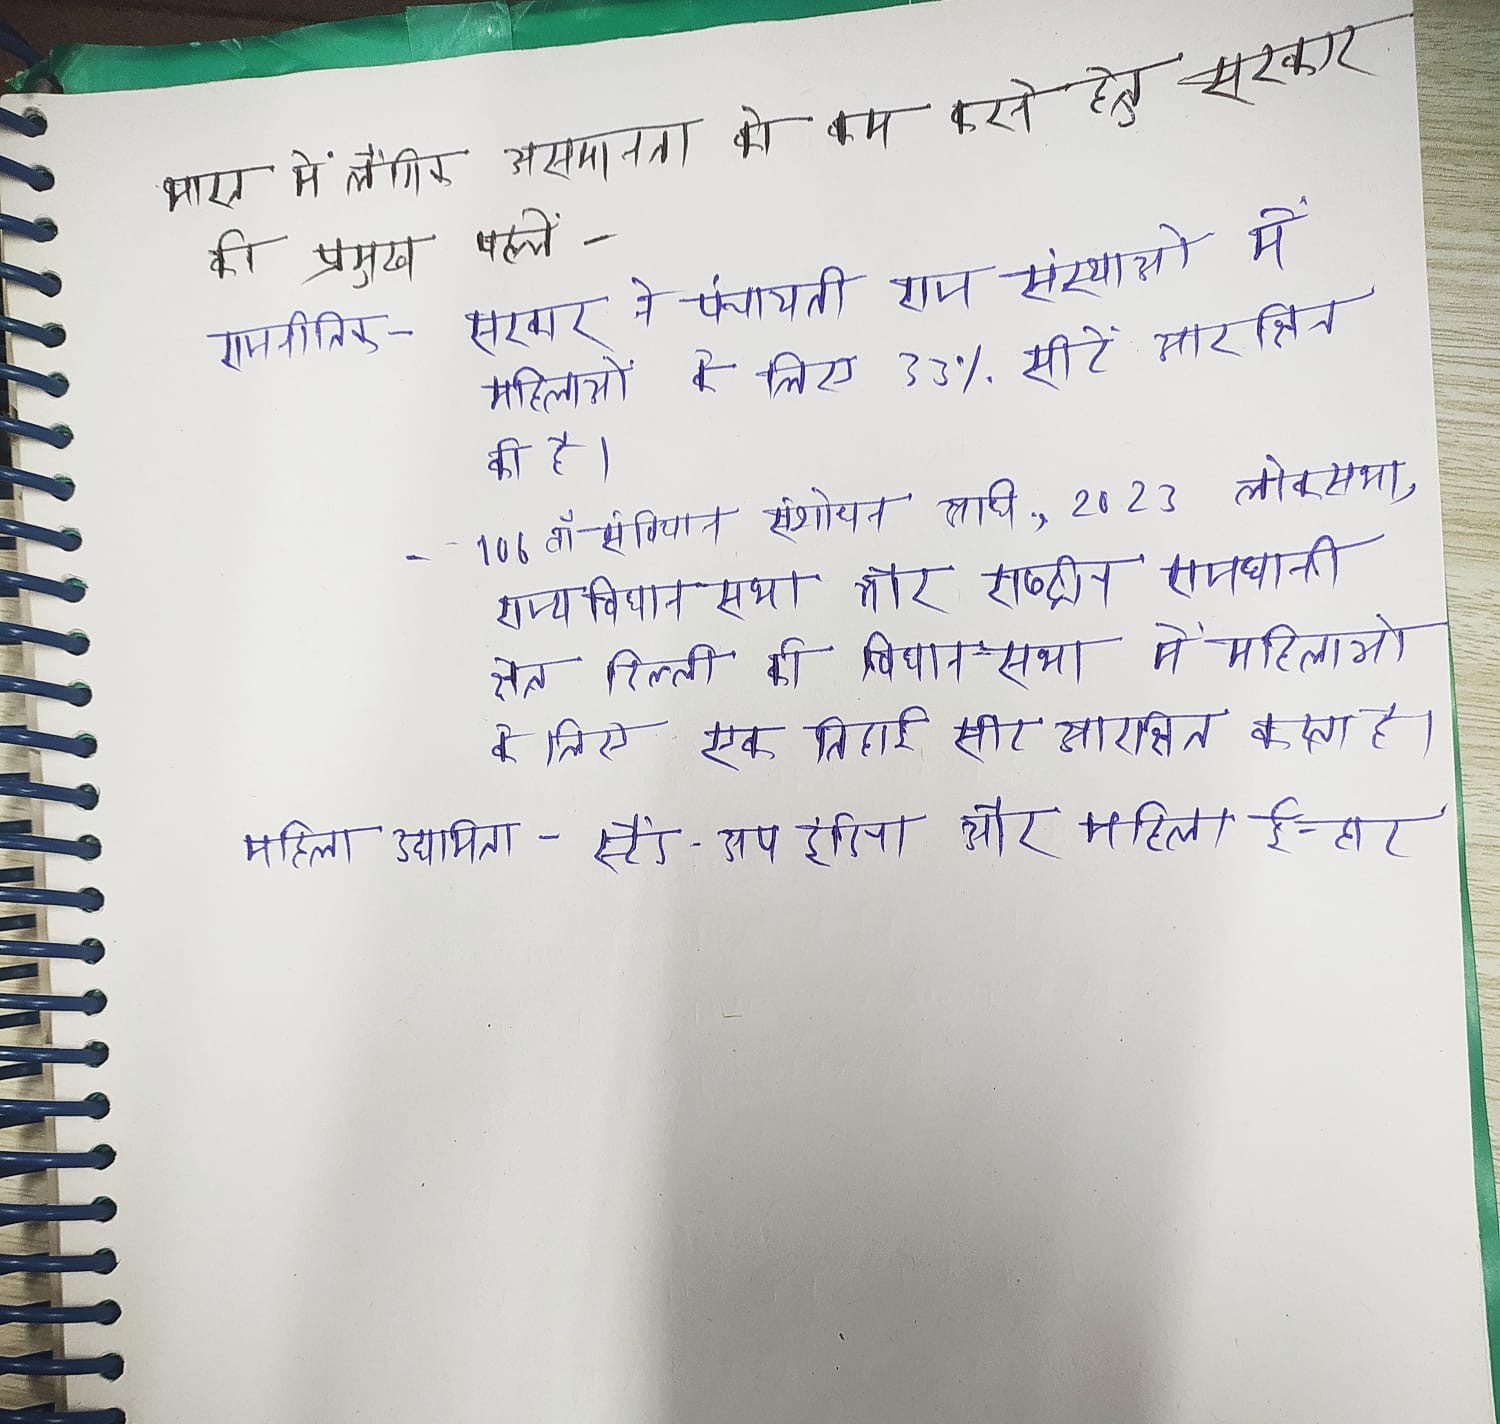 भारत में लैंगिक असमानता को कम करने हेतु सरकार
की प्रमुख पहलें -
राजनीतिक - सरकार ने पंचायती राज संस्थाओ में
महिलाओं के लिए 33% सीटें आरक्षित
की है।
- 106 वाँ संविधान संशोधन अधि., 2023 लोकसभा,
राज्य विधान सभा और राष्ट्रीय राजधानी
क्षेत्र दिल्ली की विधान सभा में महिलाओ
के लिए एक तिहाई सीट आरक्षित करता है।
महिला उद्यमिता - स्टैंड - अप इंडिया और महिला ई-हाट